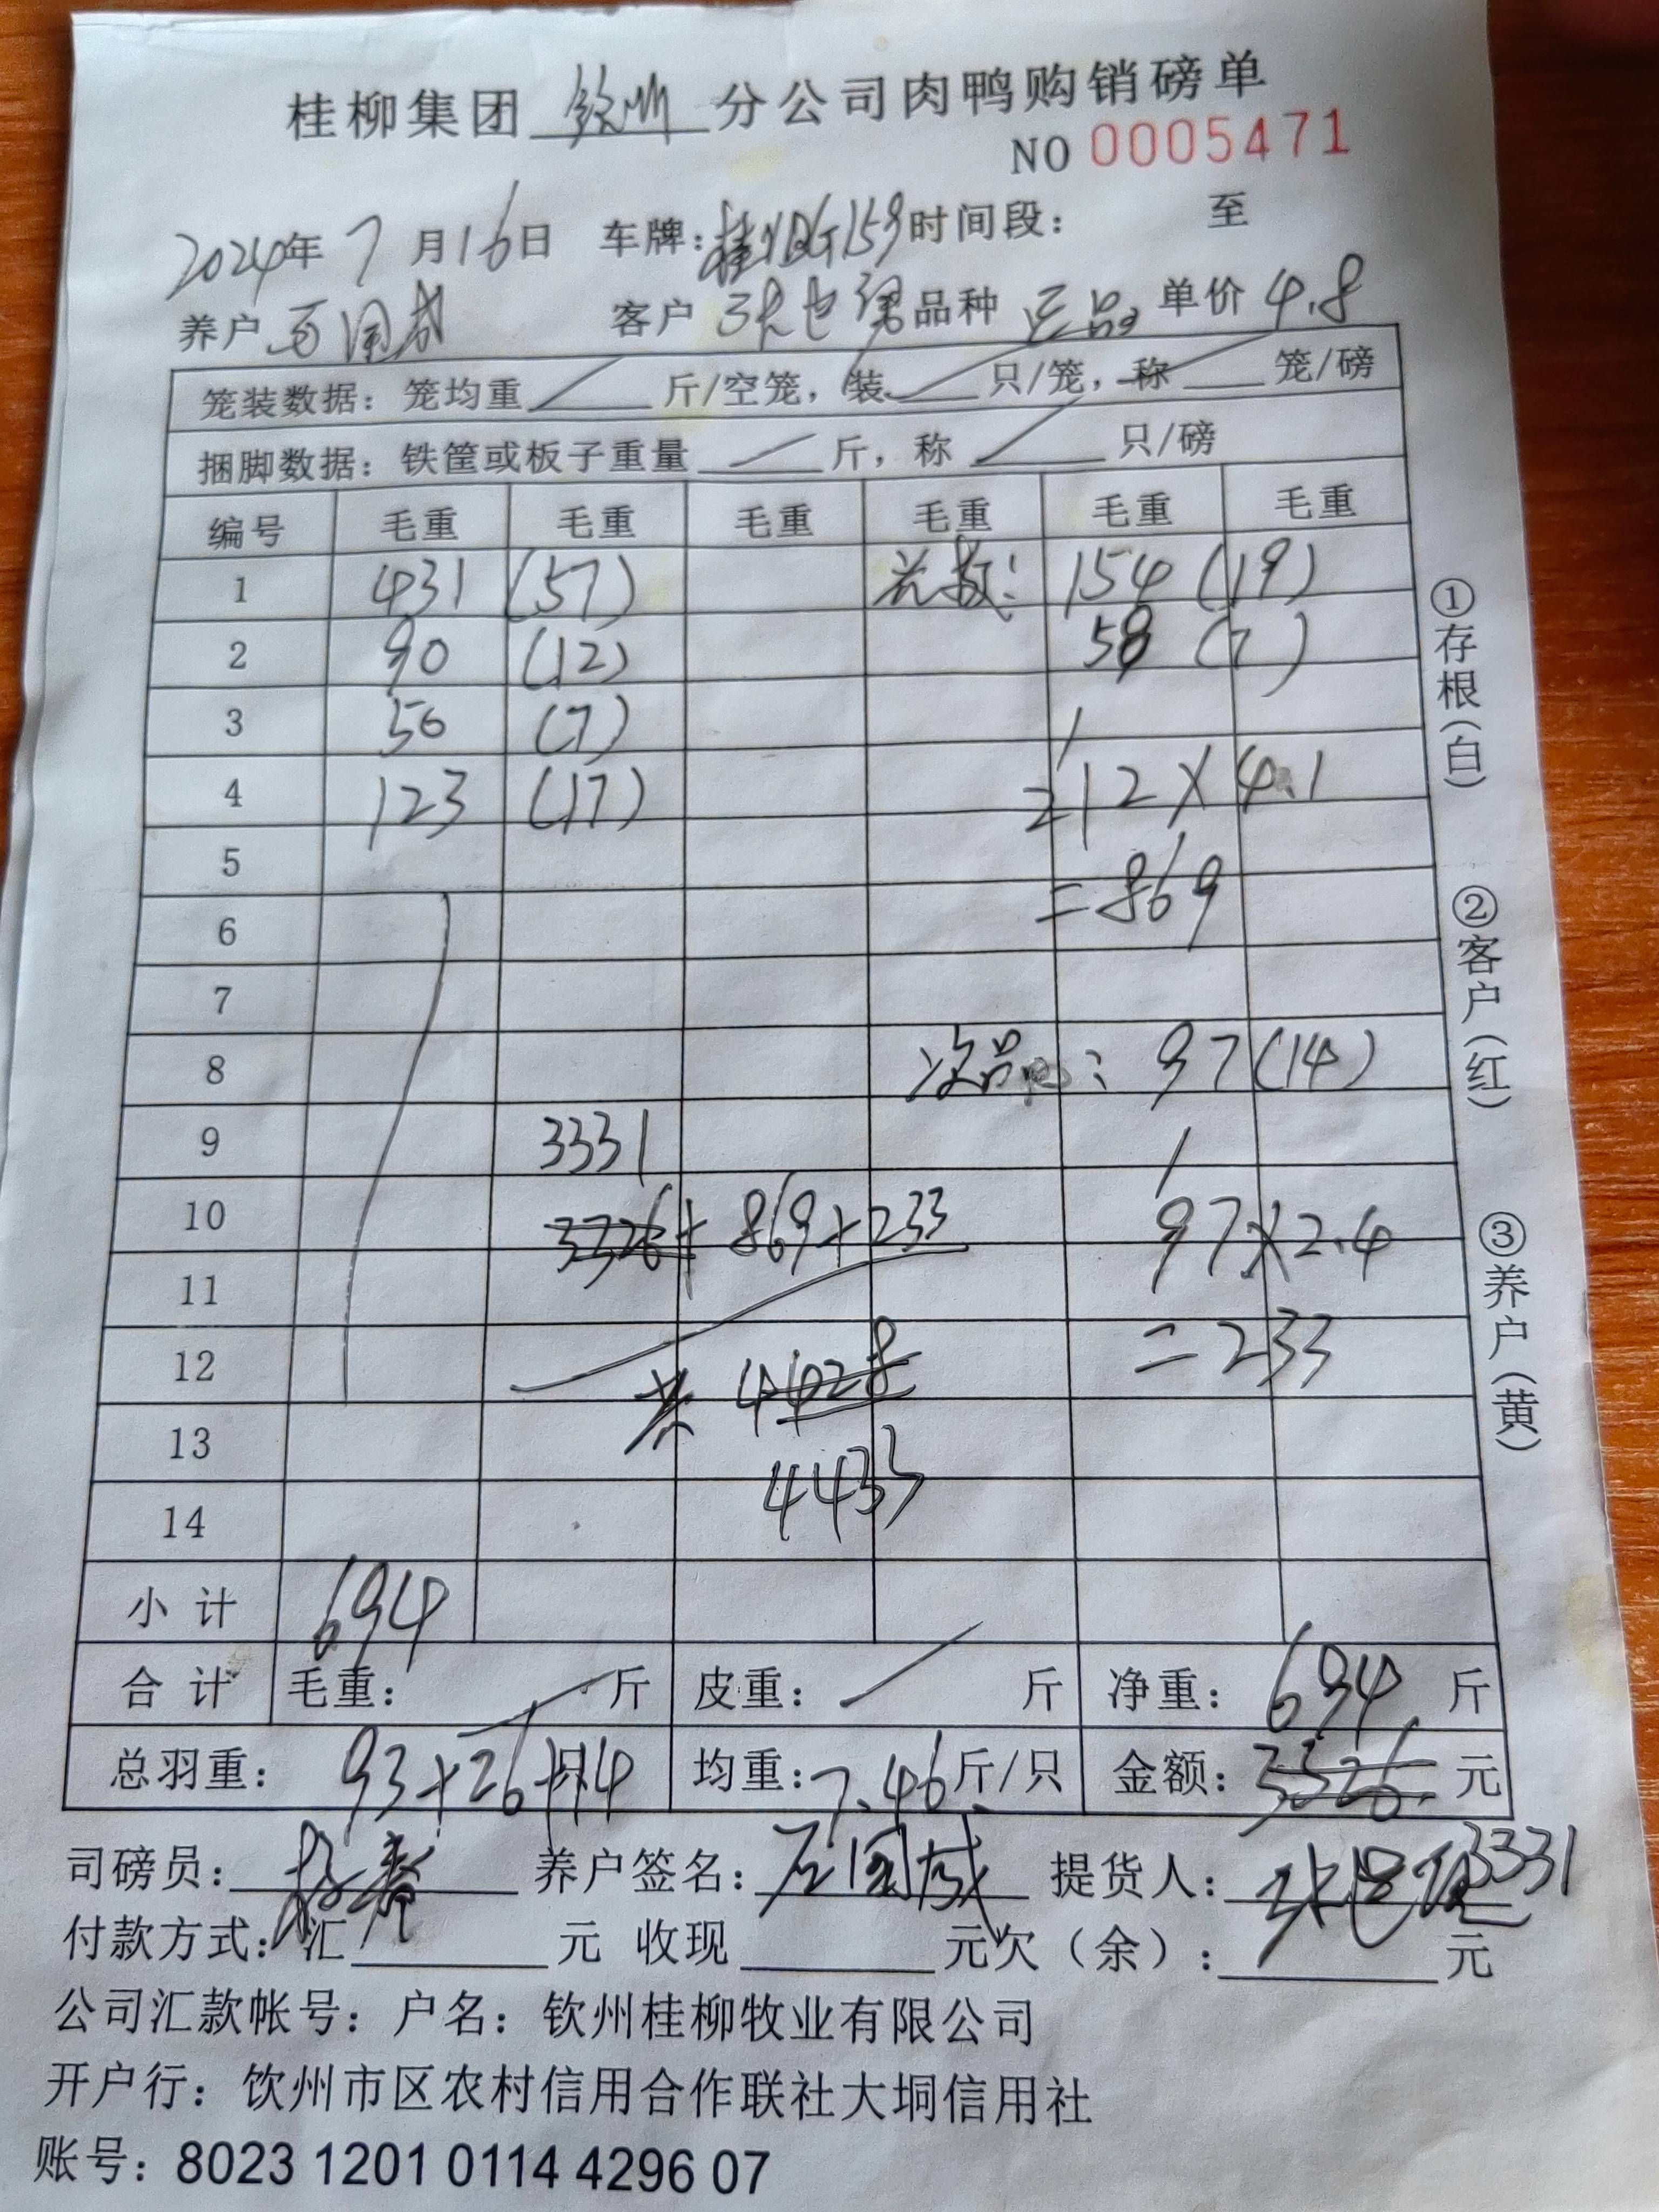 桂柳集团 钦州 分公司肉鸭购销磅单
NO 0005471
2024年 7 月16日 车牌: 时间段: 至
养户 客户 品种 正品 单价 4.8
笼装数据: 笼均重 斤/空笼, 装 只/笼, 称 笼/磅
捆脚数据: 铁筐或板子重量 斤, 称 只/磅
编号 毛重 毛重 毛重 毛重 毛重 毛重
1 431 (57) 154 (19)
2 90 (12) 58 (7)
3 50 (7)
4 123 (17) 212×4.1
5
=869
6
7
8 次品 : 97(14)
9 3331
10 3326+869+233 97×2.4
11
12 共 4428 =233
13
4433
14
小 计 694
合 计 毛重: 斤 皮重: 斤 净重: 694 斤
总羽重: 93+26+14 只 均重: 7.46 斤/只 金额: 3326 元
司磅员: 养户签名: 提货人: 3331
付款方式: 汇 元 收现 元欠(余): 元
公司汇款帐号: 户名: 钦州桂柳牧业有限公司
开户行: 钦州市区农村信用合作联社大垌信用社
账号: 8023 1201 0114 4296 07
①存根(白)
②客户(红)
③养户(黄)